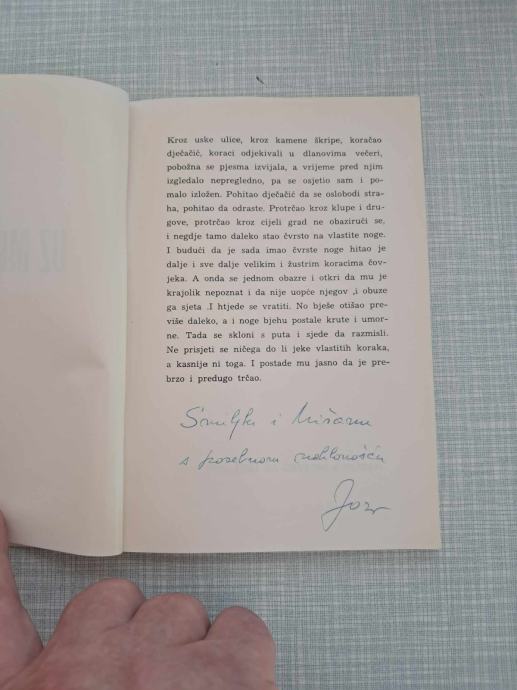 Kroz uske ulice, kroz kamene škripe, koračao
dječačić, koraci odjekivali u dlanovima večeri,
pobožna se pjesma izvijala, a vrijeme pred njim
izgledalo nepregledno, pa se osjetio sam i po-
malo izložen. Pohitao dječačić da se oslobodi stra-
ha, pohitao da odraste. Protrčao kroz klupe i dru-
gove, protrčao kroz cijeli grad ne obazirući se,
i negdje tamo daleko stao čvrsto na vlastite noge.
I budući da je sada imao čvrste noge hitao je
dalje i sve dalje velikim i žustrim koracima čov-
jeka. A onda se jednom obazre i otkri da mu je
krajolik nepoznat i da nije uopće njegov ,i obuze
ga sjeta .I htjede se vratiti. No bješe otišao pre-
više daleko, a i noge bjehu postale krute i umor-
ne. Tada se skloni s puta i sjede da razmisli.
Ne prisjeti se ničega do li jeke vlastitih koraka,
a kasnije ni toga. I postade mu jasno da je pre-
brzo i predugo trčao.
Smiljki i
s posebnom naklonošću